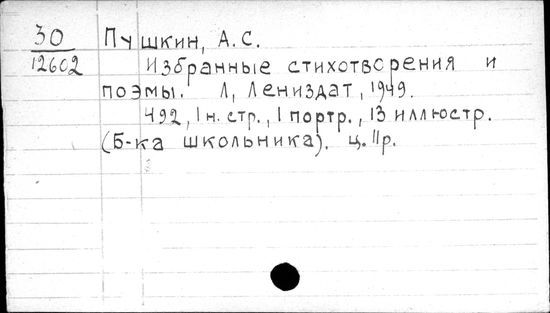 30 Пушкин, А.С.
12602 Избранные стихотворения и
поэмы. Л, Лениздат, 1949.
492, 1 н. стр., 1 портр., 13 иллюстр.
(Б-ка школьника). ц. 11р.